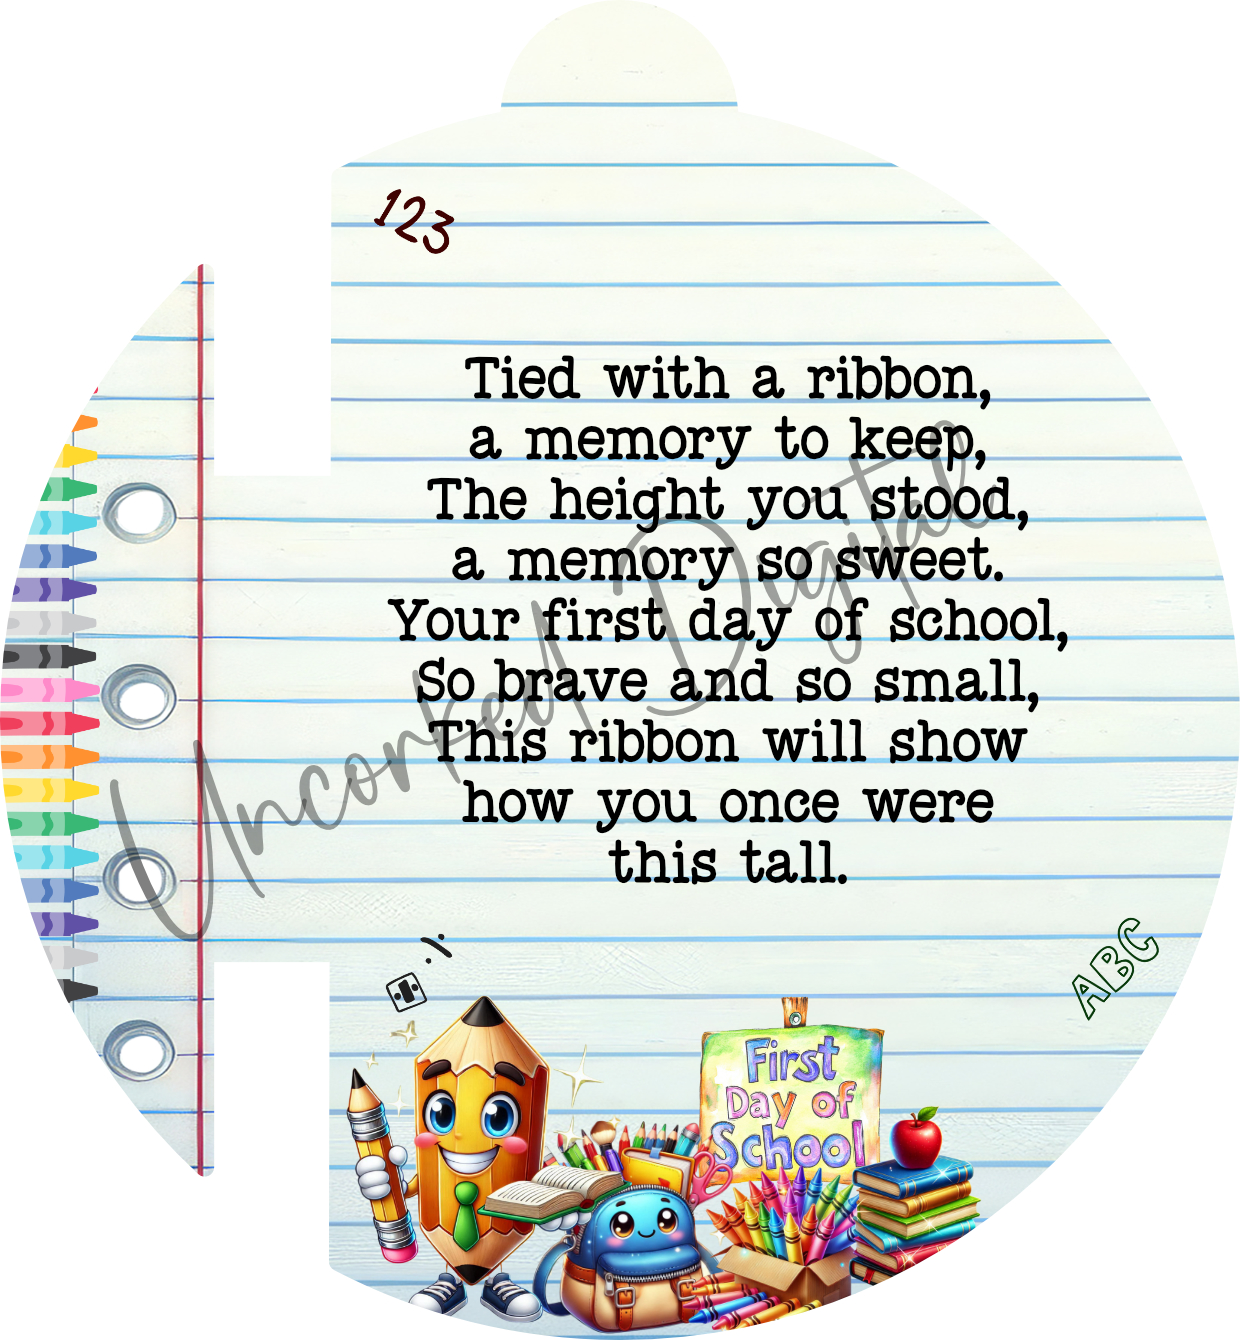 123
Tied with a ribbon,
a memory to keep,
The height you stood,
a memory so sweet.
Your first day of school,
So brave and so small,
This ribbon will show
how you once were
this tall.
Uncorked Digital
ABC
First
Day of
School